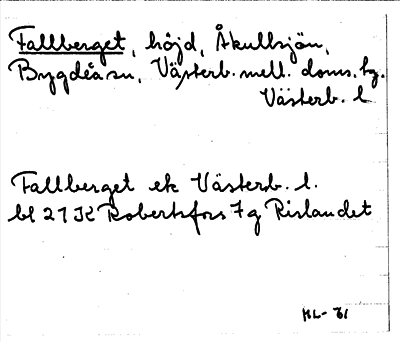 Fallberget, höjd, Åkullsjön,
Bygdeå sn, Västerb. mell. doms. tg.
Västerb. l
Fallberget ek Västerb. l.
bl 21 K Robertsfors 7 g Rislandet
HL- 61